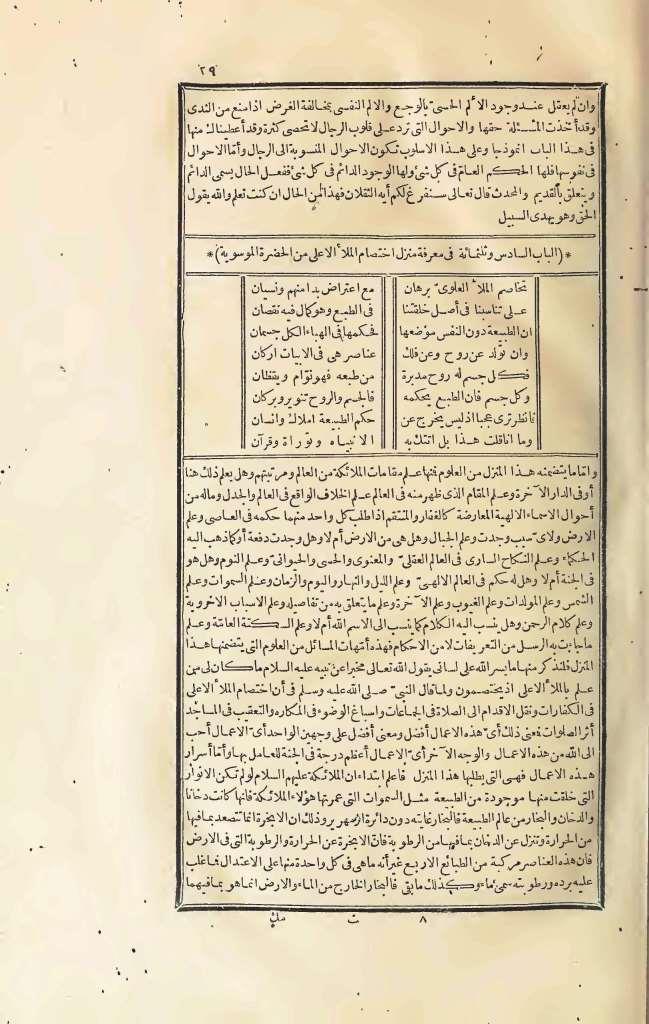 ٢٩
وان لم يعقل عند وجود الألم الحسىّ بالوجع والالم النفسى بمخالفة الغرض اذا منع من الثدى
وقد أخذت المسئلة حقها والاحوال التى ترد على قلوب الرجال لا تحصى كثرة وقد أعطيناك منها
فى هذا الباب انموذجا وعلى هذا الاسلوب تكون الاحوال المنسوبة الى الرجال وأمّا الاحوال
فى نفوسها فلها الحكم العامّ فى كل شئ ولها الوجود الدائم فى كل شئ ففعل الحال يسمى الدائم
ويتعلق بالقديم والمحدث قال تعالى سنفرغ لكم أيه الثقلان فهذا لمن الحال ان كنت تعلم والله يقول
الحق وهو يهدى السبيل
*(الباب السادس وثلثمائة فى معرفة منزل اختصام الملأ الاعلى من الحضرة الموسوية)*
تخاصم الملأ العلوىّ برهان مع اعتراض بدا منهم ونسيان
على تناسبنا فى أصل خلقتنا فى الطبع وهو كمال فيه نقصان
ان الطبيعة دون النفس موضعها فحكمها فى الهباء الكل جسمان
وان تولد عن روح وعن فلك عناصر هى فى الابيات اركان
فكل جسم له روح مدبرة من طبعه فهو نوّام ويقظان
وكل جسم فان الطبع يحكمه فالجسم والروح تنوير وبركان
فانظر ترى عجبا اذ ليس يخرج عن حكم الطبيعة املاك وانسان
وما اناقلت هذا بل اتتك به الانبياء وتوراة وقرآن
وامّا ما يتضمنه هذا المنزل من العلوم فمنها علم مقامات الملائكة من العالم ومرتبتهم وهل يعلم ذلك هنا
أو فى الدار الآخرة وعلم المقام الذى ظهر منه فى العالم علم الخلاف الواقع فى العالم والجدل وماله من
أحوال الاسماء الالهية المعارضة كالغفار والمنتقم اذا طلب كل واحد منهما حكمه فى العاصى وعلم
الارض ولاىّ سبب وجدت وعلم الجبال وهل هى من الارض أم لا وهل وجدت دفعة أو كما ذهب اليه
الحكماء وعلم النكاح السارى فى العالم العقلىّ والمعنوى والحسى والحيوانىّ وعلم النوم وهل هو
فى الجنة أم لا وهل له حكم فى العالم الالهىّ وعلم الليل والنهار واليوم والزمان وعلم السموات وعلم
الشمس وعلم المولدات وعلم الغيوب وعلم الآخرة وعلم ما يتعلق به من تفاصيله وعلم الاسباب الاخروية
وعلم كلام الرحمن وهل ينسب اليه الكلام كما ينسب الى الاسم الله أم لا وعلم السكتة العامّة وعلم
ما جاءت به الرسل من التعريفات لا من الاحكام فهذه أمّهات المسائل من العلوم التى يتضمنها هذا
المنزل فلنذكر منها ما يسر الله على لسانى يقول الله تعالى مخبرا عن نبيه عليه السلام ما كان لى من
علم بالملأ الاعلى اذ يختصمون ولما قال النبىّ صلى الله عليه وسلم فى أن اختصام الملأ الاعلى
فى الكفارات ونقل الاقدام الى الصلاة فى الجماعات واسباغ الوضوء فى المكاره والتعقيب فى المساجد
أثر الصلوات فمعنى ذلك أىّ هذه الاعمال أفضل ومعنى أفضل على وجهين الواحد أىّ الاعمال أحب
الى الله من هذه الاعمال والوجه الآخر أىّ الاعمال أعظم درجة فى الجنة للعامل بها وأمّا أسرار
هذه الاعمال فهى التى يطلبها هذا المنزل فاعلم ابتداء ان الملائكة عليهم السلام لو لم تكن الانوار
التى خلقت منها موجودة من الطبيعة مثل السموات التى عمرتها هؤلاء الملائكة فانها كانت دخانا
والدخان والبخار من عالم الطبيعة فالبخار غايته دون دائرة الزمهرير وذلك ان الابخرة انما تتصعد بما فيها
من الحرارة وتنزل عن الدخان بما فيها من الرطوبة فانّ الابخرة عن الحرارة والرطوبة التى فى الارض
فان هذه العناصر مركبة من الطبائع الاربع غير أنه ما هى فى كل واحدة منها على الاعتدال فما غلب
عليه برده ورطوبته سمى ماء وكذلك ما بقى فالبخار الخارج من الماء والارض انما هو بما فيهما
٨ ت من